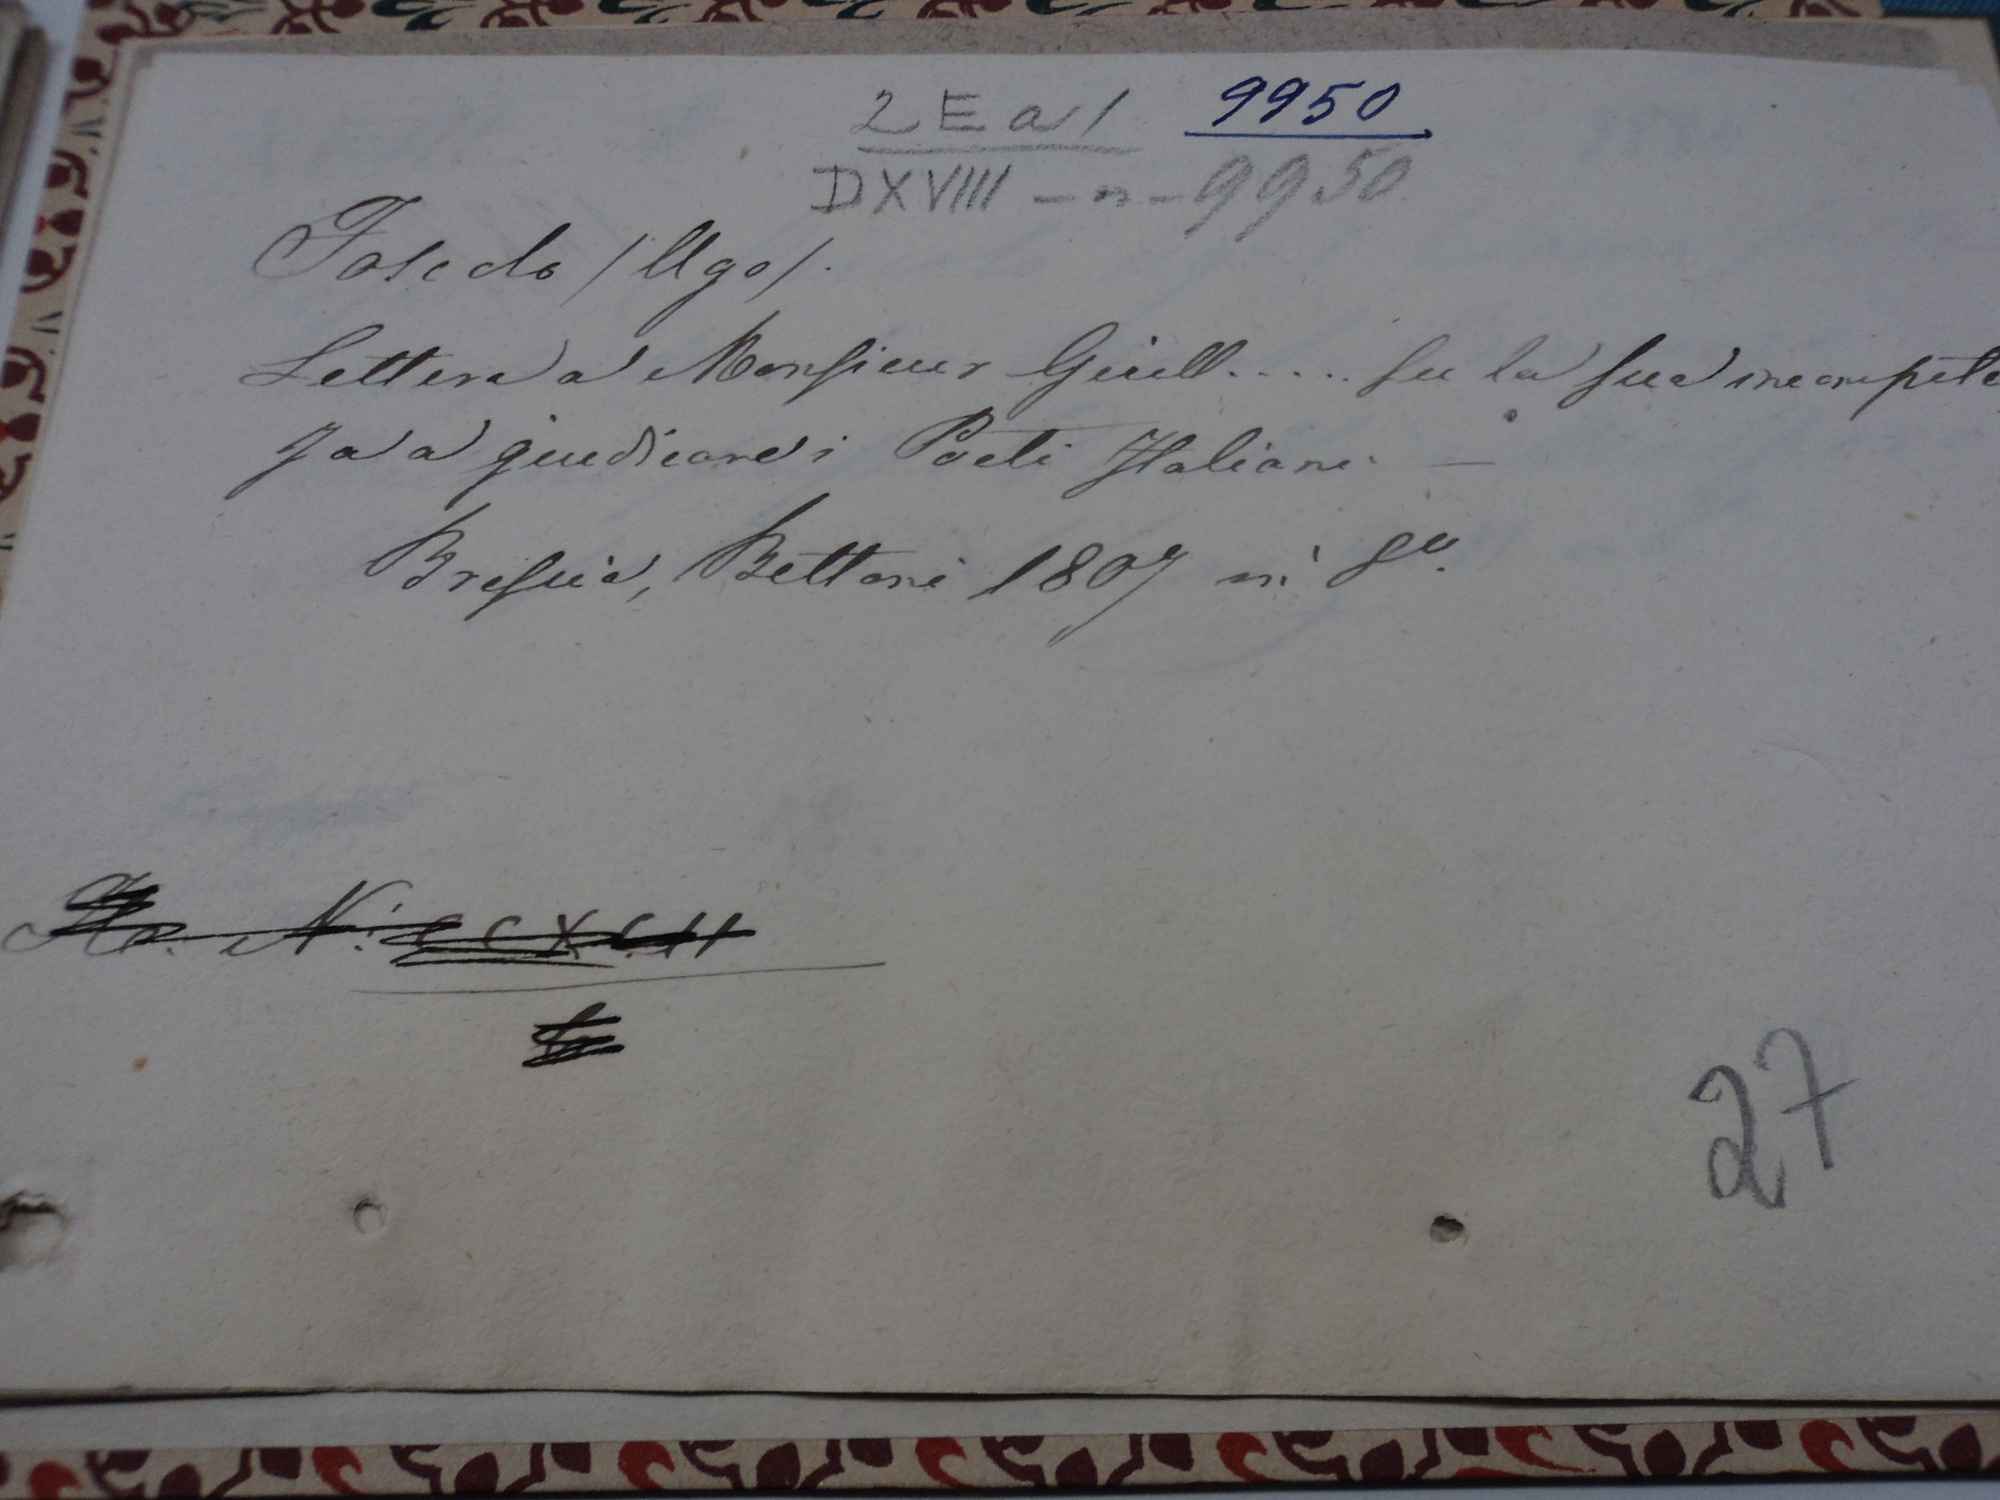 2 E a 1 9950
DXVIII - n - 9950
Foscolo / Ugo /.
Lettera a Monsieur Guill..... su la sua incompeten
za a giudicare i Poeti Italiani —
Brescia, Bettoni 1807 in 8º.
N. CCXCII
27